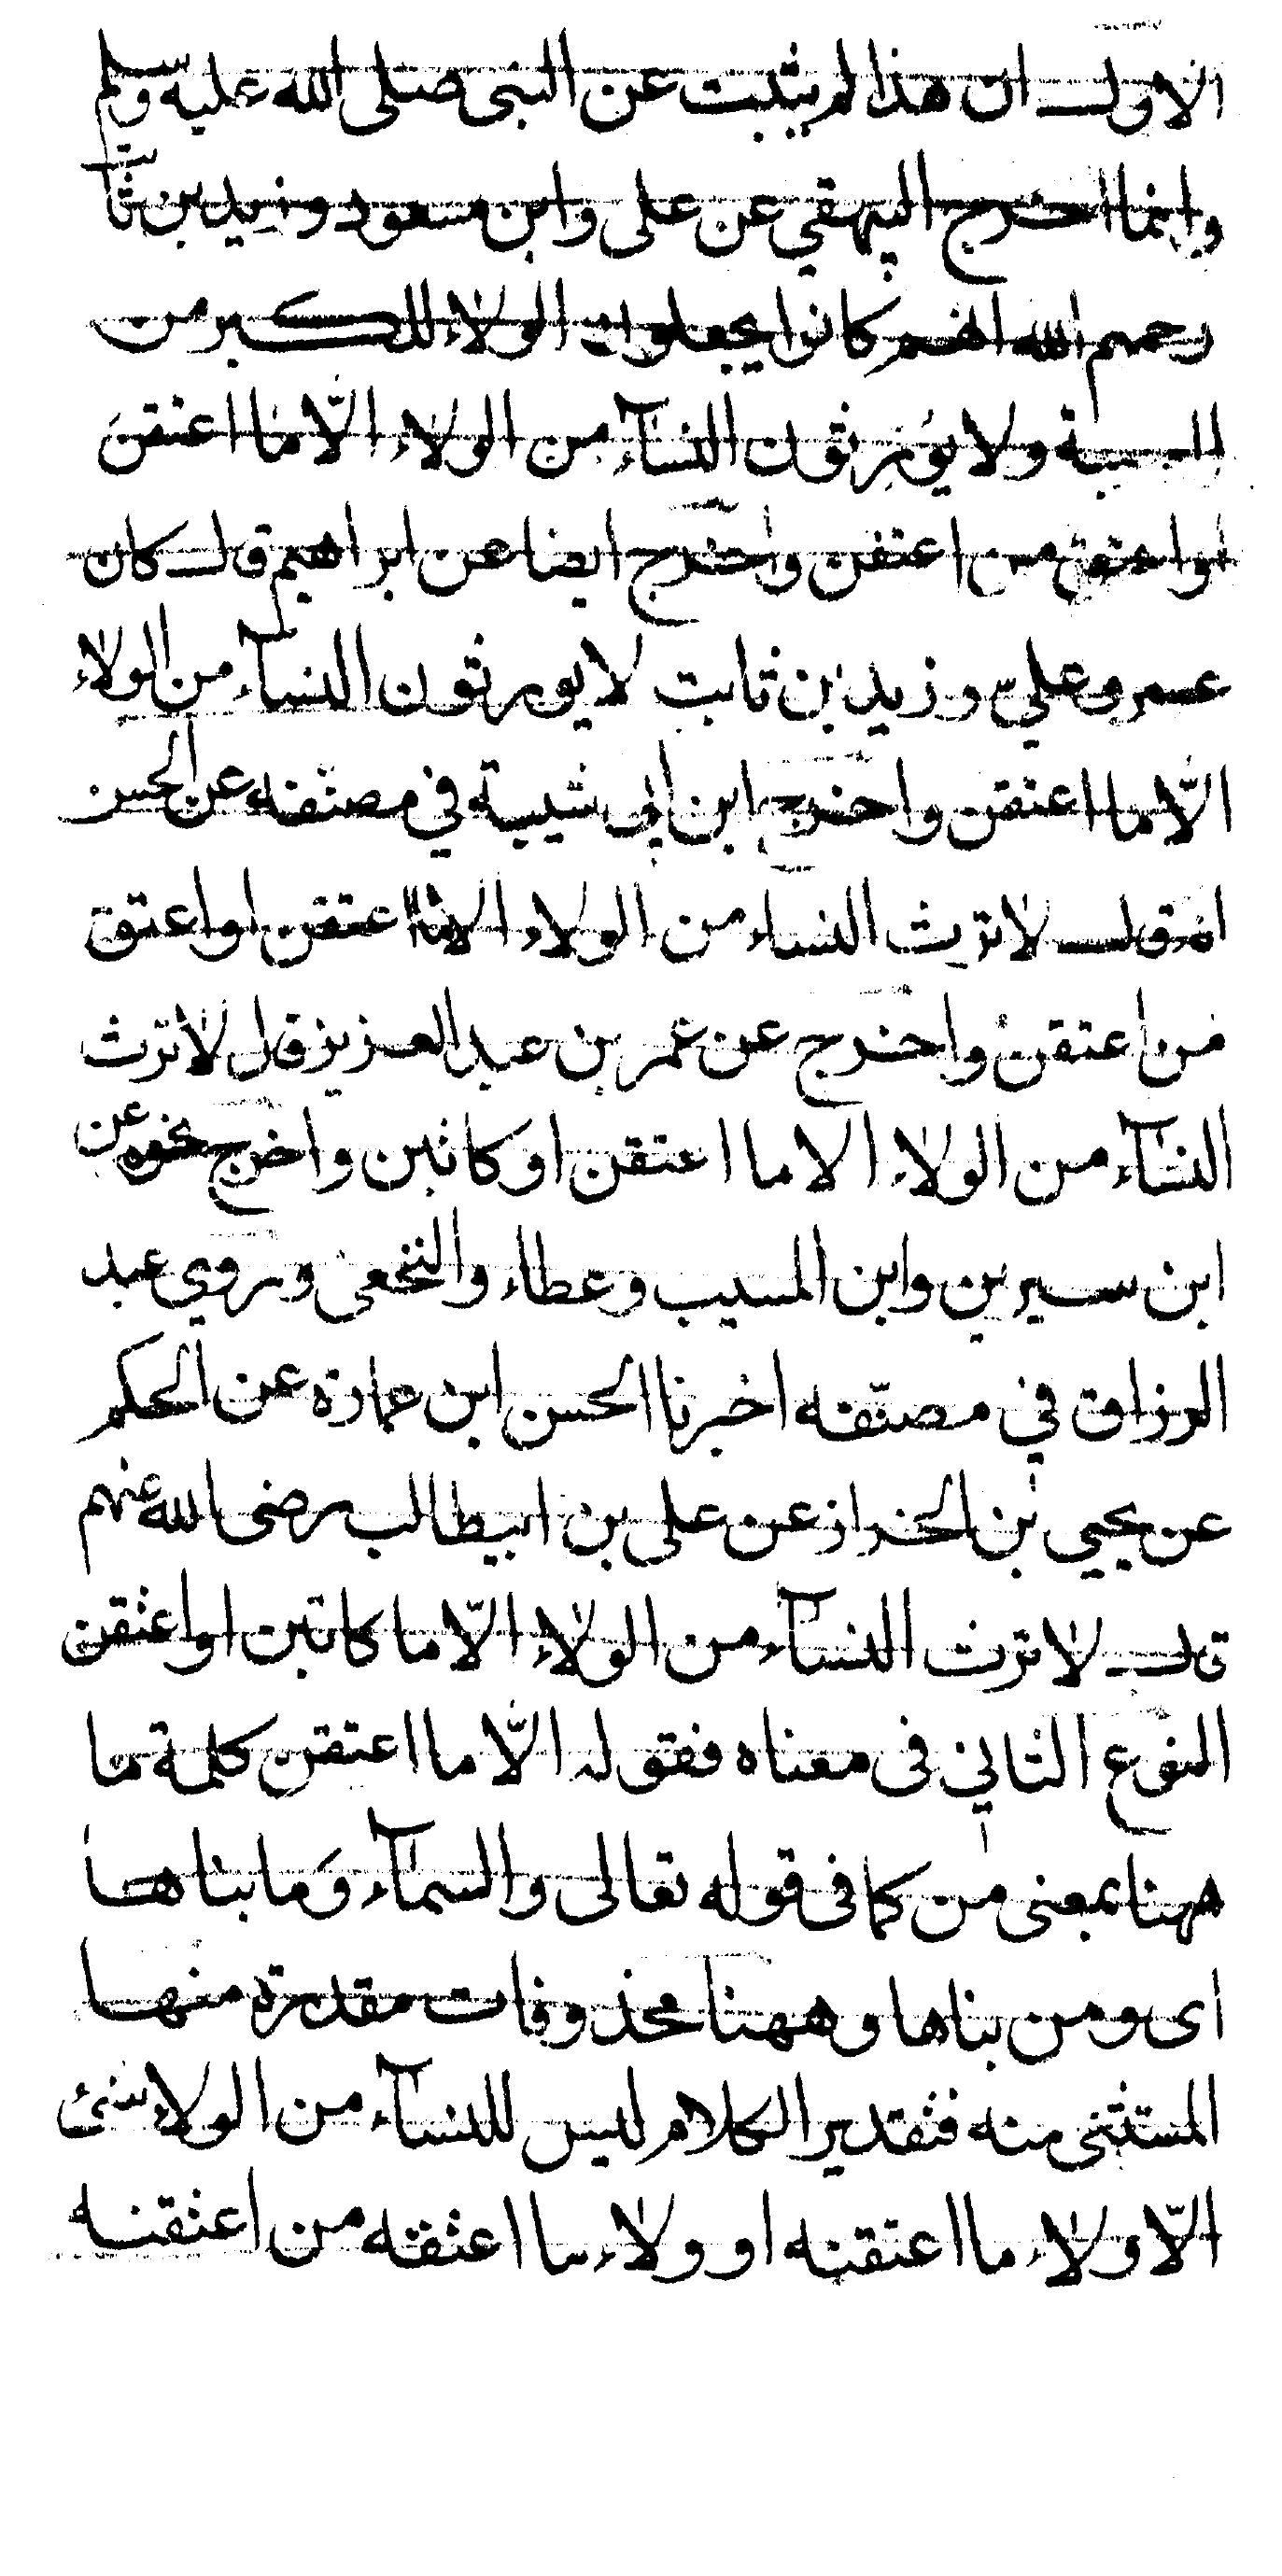 الاول ان هذا لم يثبت عن النبى صلى الله عليه وسلم
وانما اخرج البيهقي عن على وابن مسعود وزيد بن ثابت
رحمهم الله انهم كانوا يجعلون الولاء للكبر من
العصبة ولا يورثون النسآء من الولاء الّا ما اعتقن
اوا عتق من اعتقن واخرج ايضا عن ابراهيم قال كان
عمر وعليّ وزيد بن ثابت لا يورثون النسآء من الولاء
الّا ما اعتقن واخرج ابن ابى شيبة في مصنفه عن الحسن
انه قال لا ترث النساء من الولاء الا ما اعتقن او اعتق
من اعتقن واخرج عن عمر بن عبد العزيز قال لا ترث
النسآء من الولاء الا ما اعتقن او كاتبن واخرج نحوه عن
ابن سيرين وابن المسيب وعطاء والنخعى وروي عبد
الرزاق في مصنّفه اخبرنا الحسن ابن عمارة عن الحكم
عن يحيي بن الخزاز عن على بن ابيطالب رضى الله عنهم
قال لا ترث النسآء من الولاء الّا ما كاتبن او اعتقن
النوع الثاني فى معناه فقوله الّا ما اعتقن كلمة ما
ههنا بمعنى من كما فى قوله تعالى والسمآء وما بناها
اى ومن بناها وههنا محذوفات مقدرة منها
المستثنى منه فتقدير الكلام ليس للنسآء من الولاء شئ
الّا ولاء ما اعتقنه او ولاء ما اعتقه من اعتقنه